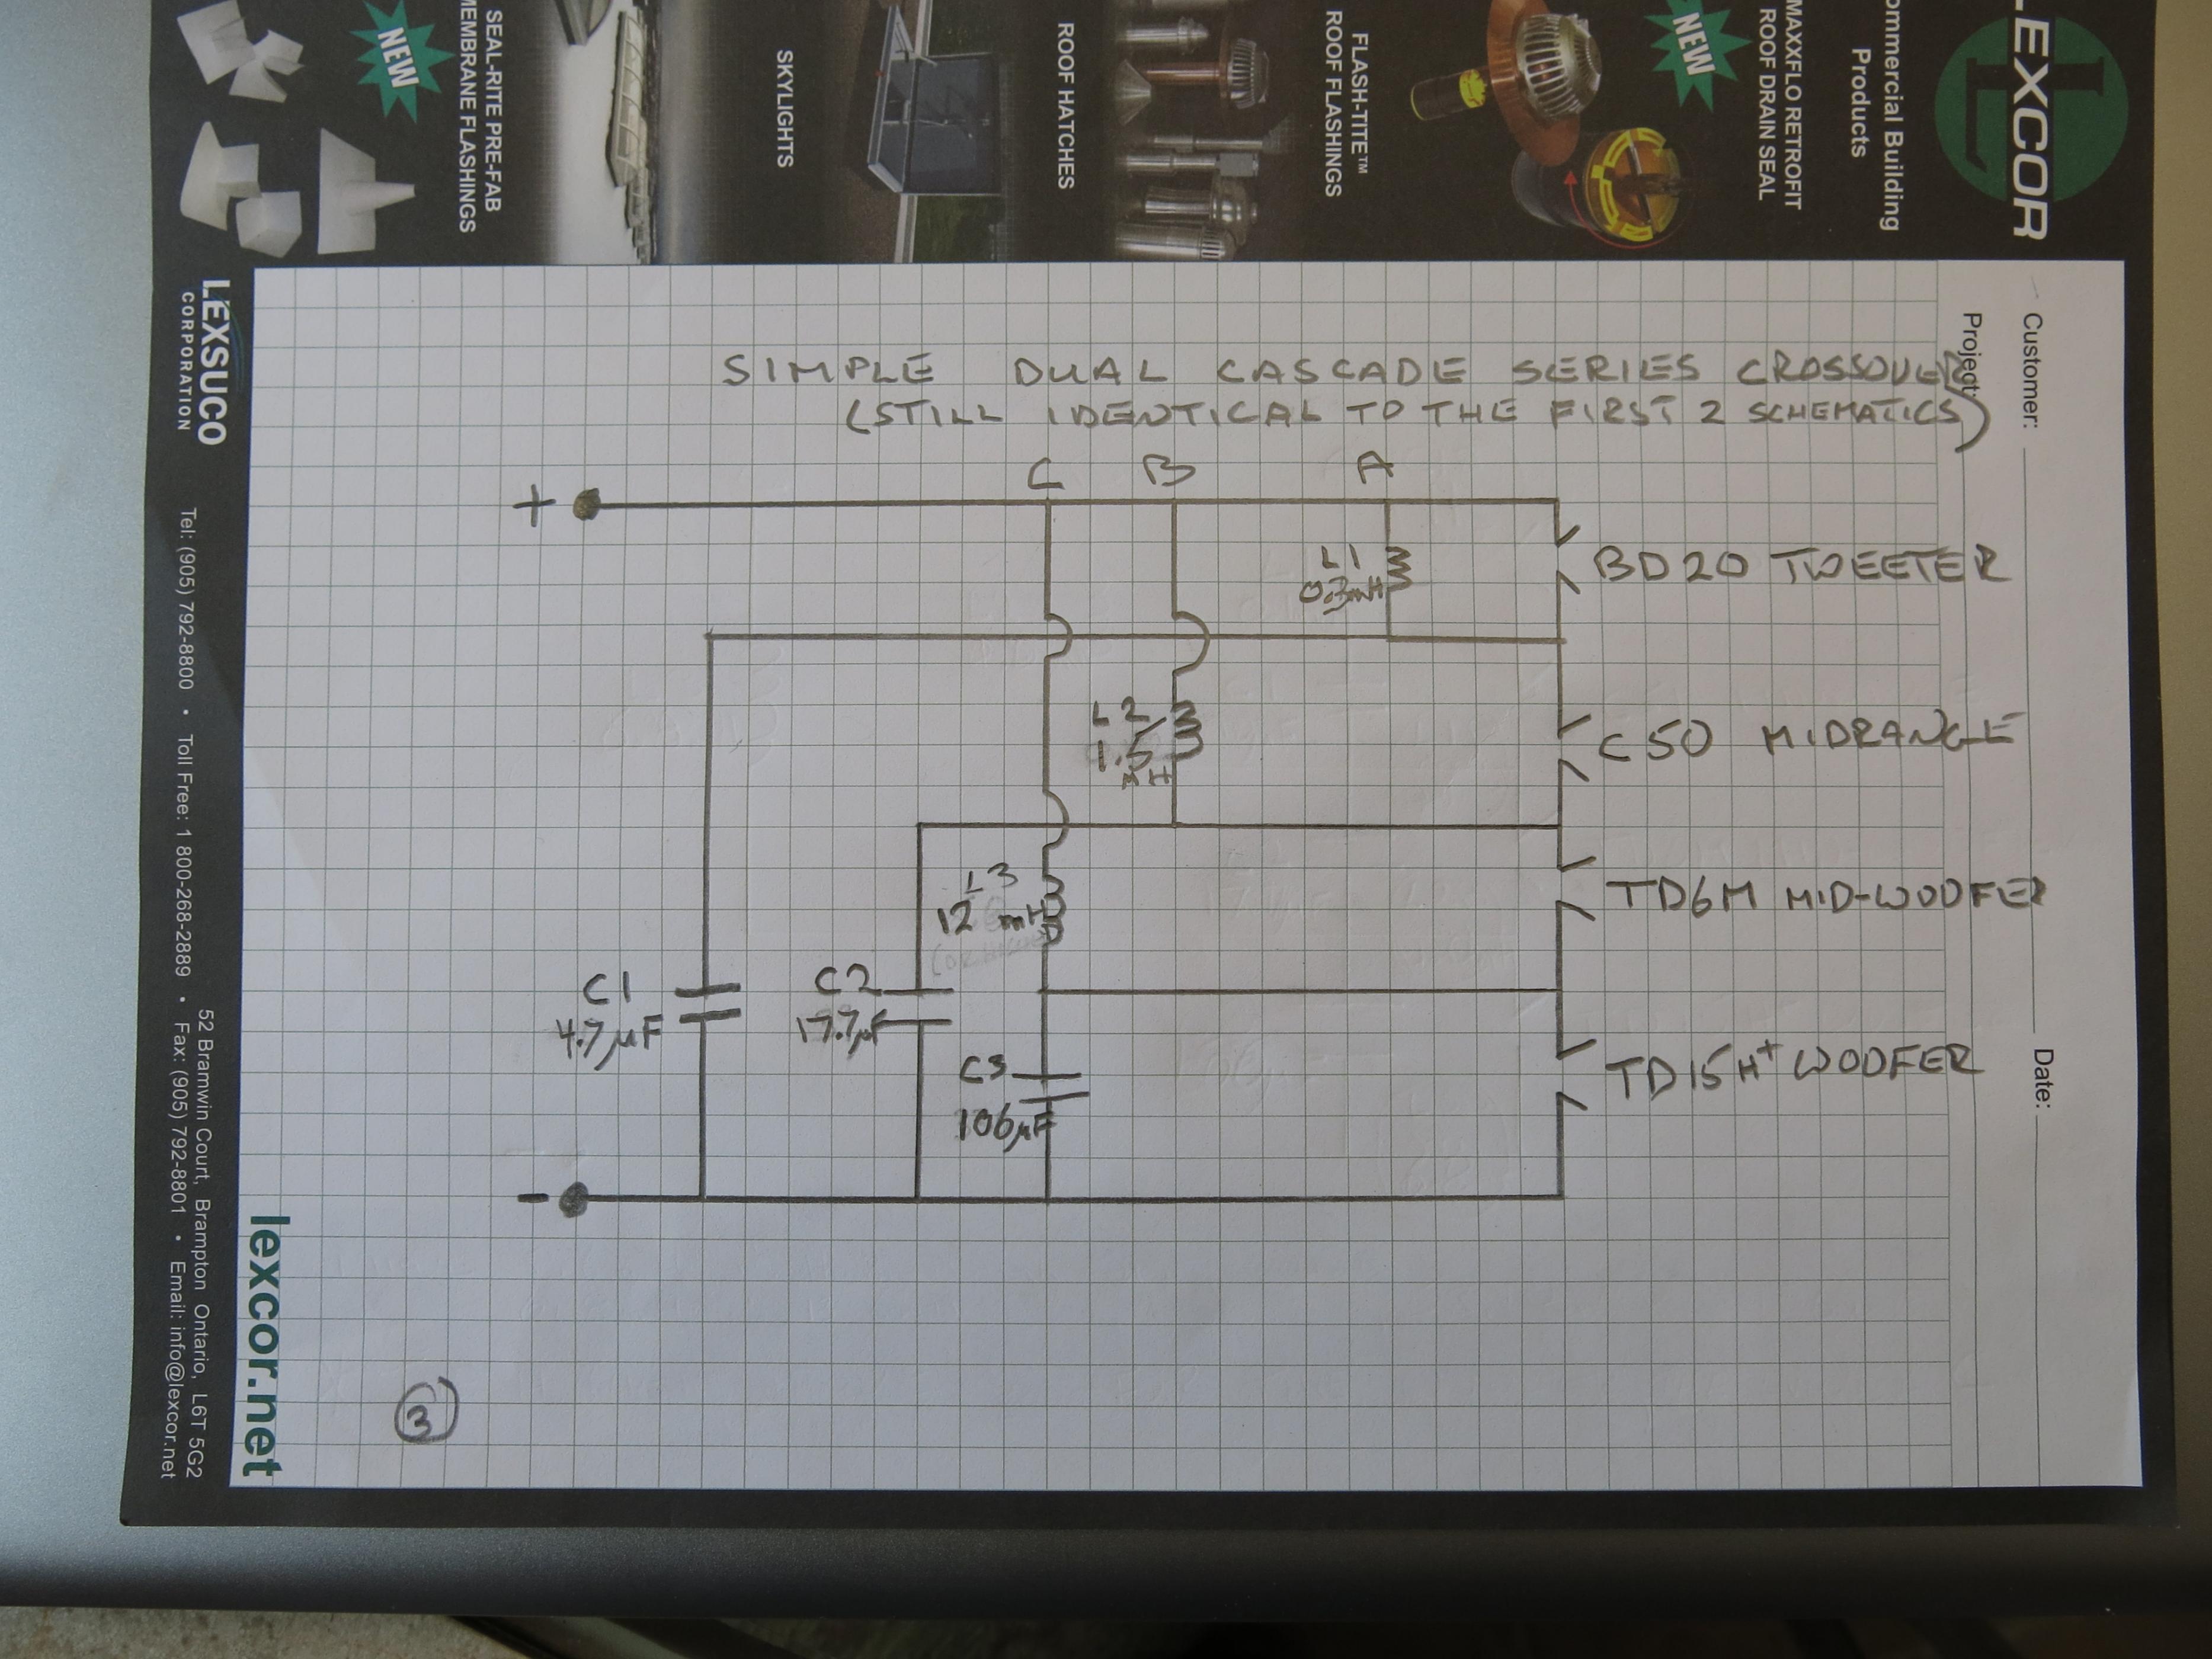 SIMPLE DUAL CASCADE SERIES CROSSOVER
(STILL IDENTICAL TO THE FIRST 2 SCHEMATICS)
C B A
+
L1
0.3mH
BD20 TWEETER
L2
1.5
mH
C50 MIDRANGE
L3
12 mH
TD6M MID-WOOFER
C1
4.7µF
C2
17.7µF
C3
106µF
TD15H+ WOOFER
-
3
LEXCOR
Commercial Building
Products
MAXXFLO RETROFIT
ROOF DRAIN SEAL
NEW
FLASH-TITE™
ROOF FLASHINGS
ROOF HATCHES
SKYLIGHTS
SEAL-RITE PRE-FAB
MEMBRANE FLASHINGS
NEW
Customer:
Date:
Project:
LEXSUCO
CORPORATION
52 Bramwin Court, Brampton Ontario, L6T 5G2
Tel: (905) 792-8800 • Toll Free: 1 800-268-2889 • Fax: (905) 792-8801 • Email: info@lexcor.net
lexcor.net